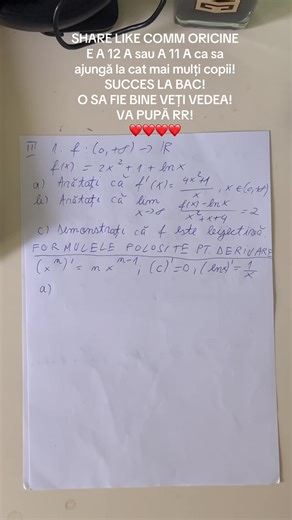 SHARE LIKE COMM ORICINE
E A 12 A sau A 11 A ca sa
ajungă la cat mai mulți copii!
SUCCES LA BAC!
O SA FIE BINE VEȚI VEDEA!
VA PUPĂ RR!
❤️❤️❤️❤️❤️
III 1. f: (0,+∞) → ℝ
f(x) = 2x² + 1 + ln x
a) Arătați că f'(x) = (4x²+1)/x, x ∈ (0,∞)
b) Arătați că lim x→∞ (f(x) - ln x)/(x²+x+9) = 2
c) Demonstrați că f este bijectivă
FORMULELE FOLOSITE PT. DERIVARE
(xⁿ)' = n x^(n-1); (c)' = 0, (ln x)' = 1/x
a)